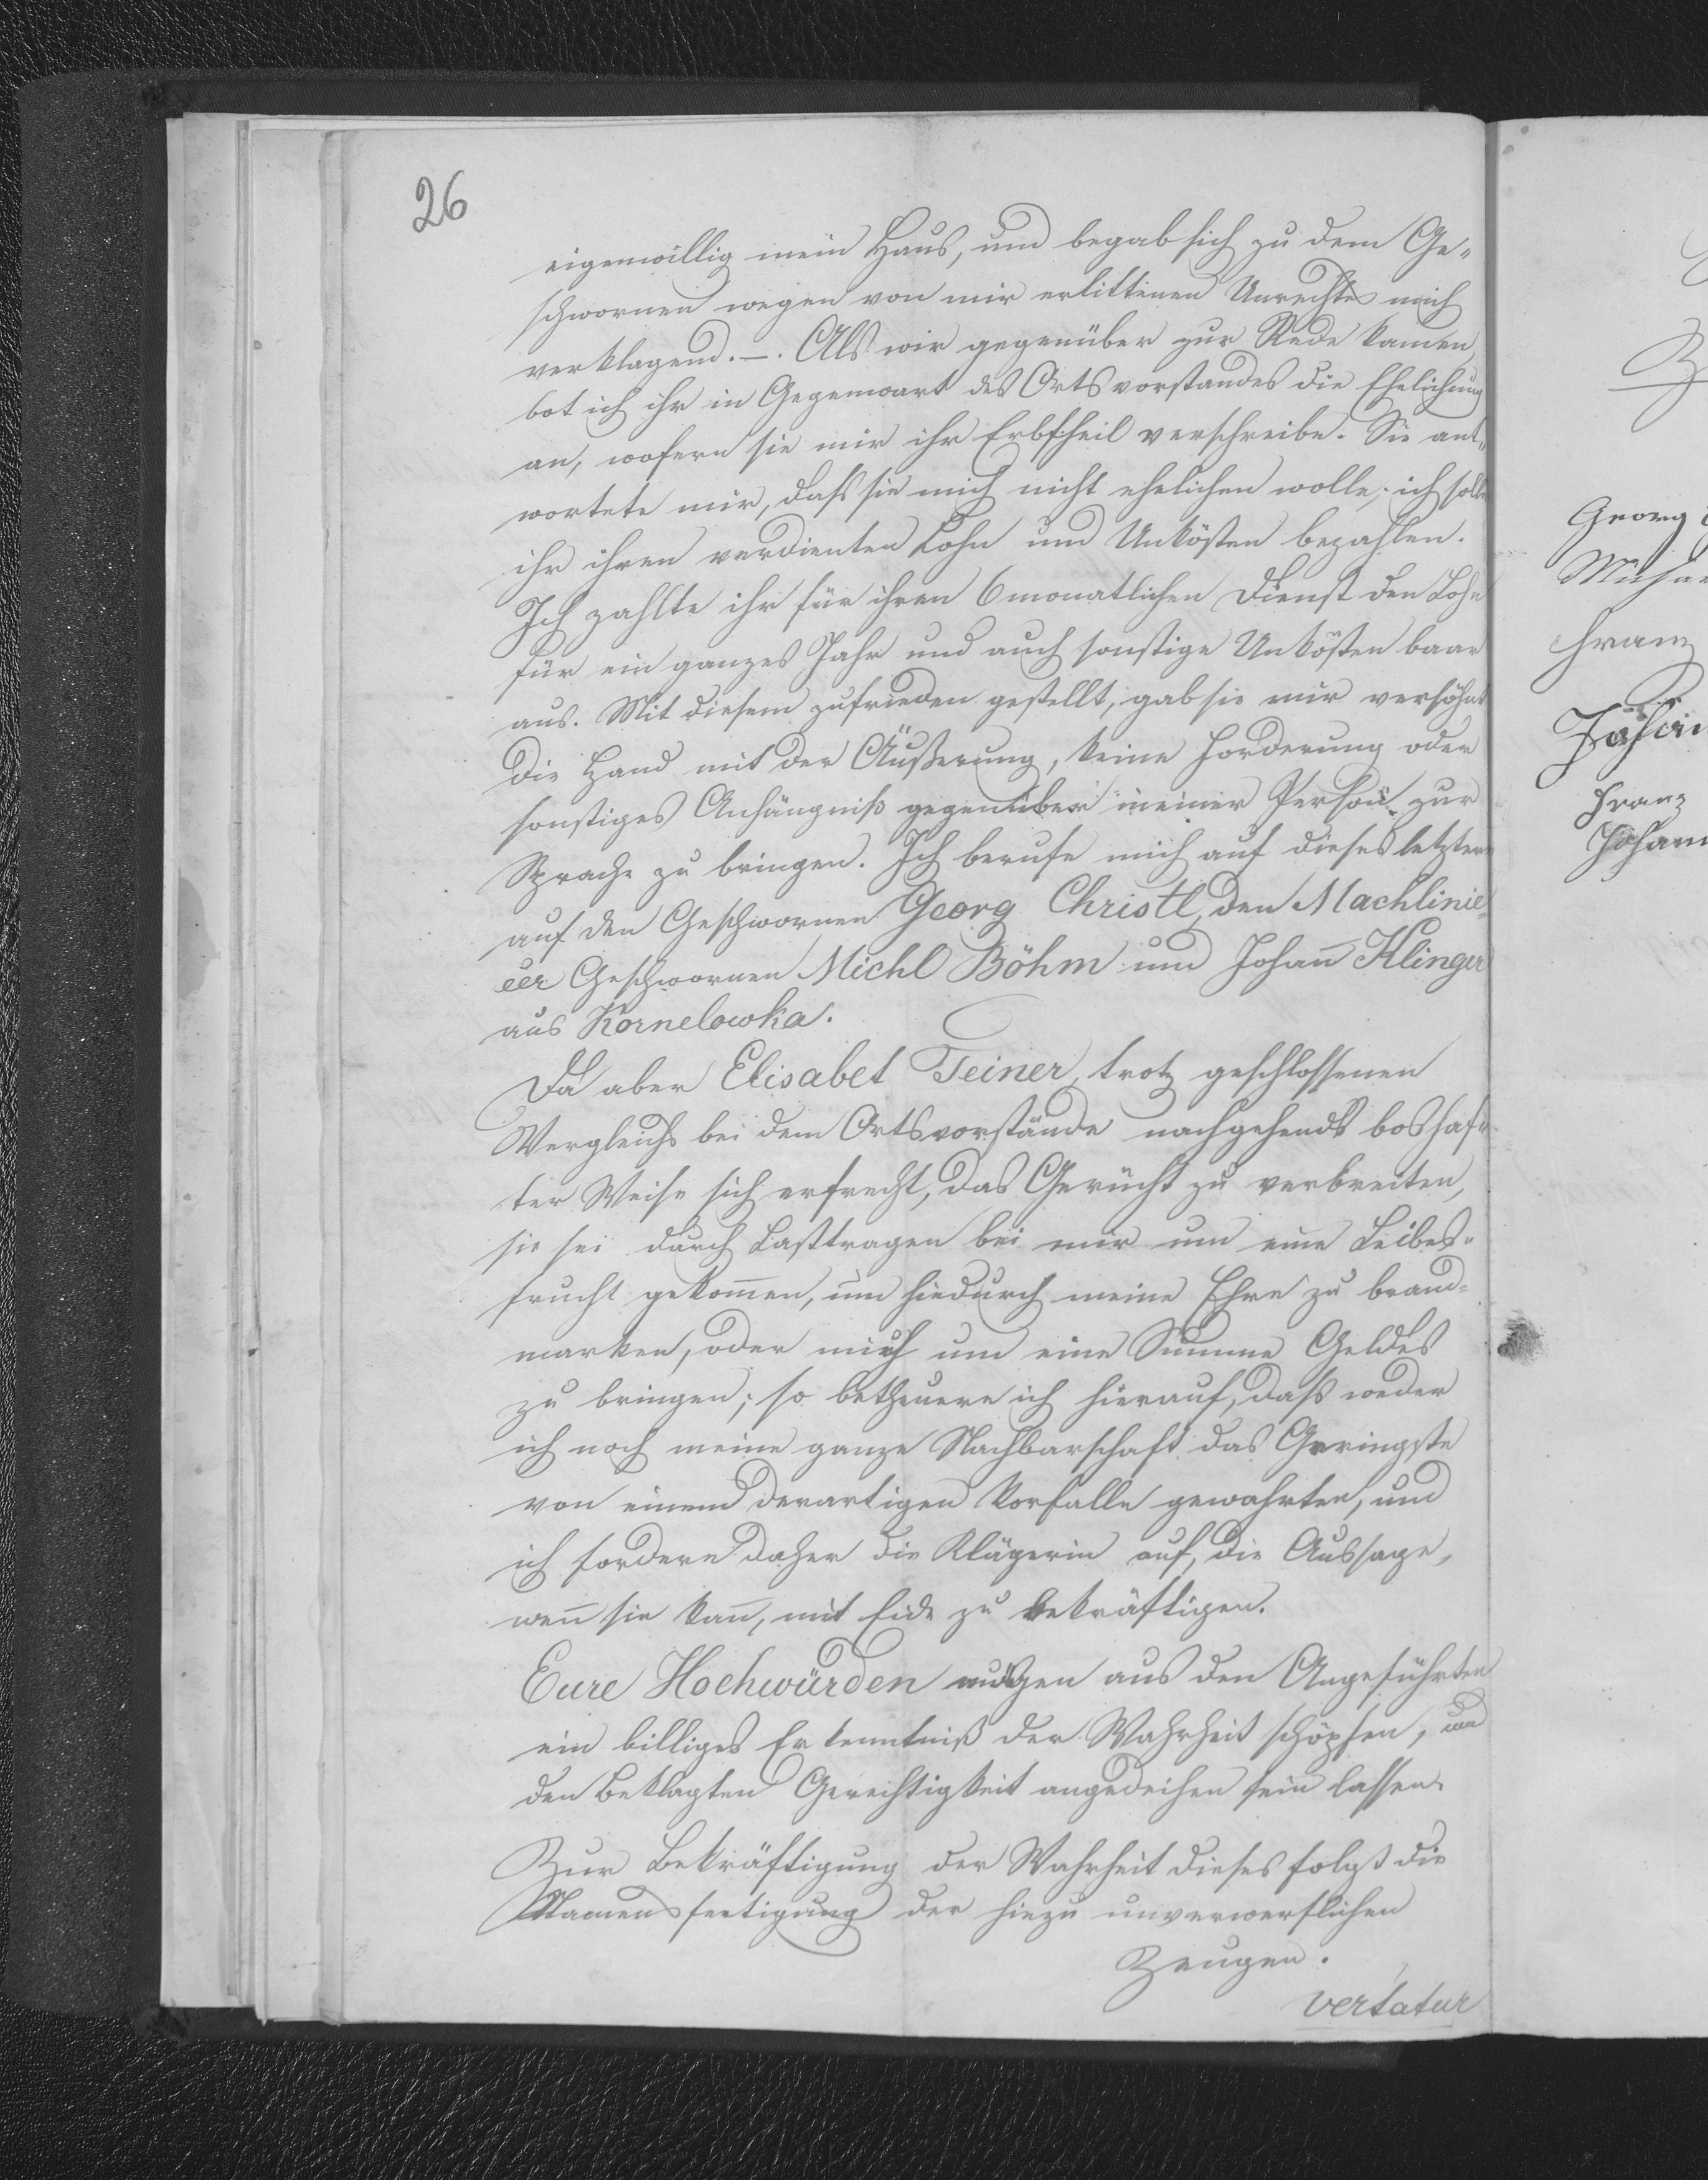 26
eigenwillig mein Haus, und begab sich zu dem Ge„
schwornen wegen von mir erlittenen Unrechtes mich
verklagend. —. Als wir gegenüber zur Rede kamen,
bot ich ihr in Gegenwart des Ortsvorstandes die Ehelichung
an, wofern sie mir ihr Erbtheil verschreibe. Sie ant„
wortete mir, daß sie mich nicht ehelichen wolle; ich solle
ihr ihren verdienten Lohn und Unkösten bezahlen.
Ich zahlte ihr für ihren 6monatlichen Dienst den Lohn
für ein ganzes Jahr und auch sonstige Unkösten baar
aus. Mit diesem zufrieden gestellt, gab sie mir versöhnt
die Hand mit der Äußerung, keine Forderung oder
sonstiges Anhängniß gegenüber meiner Person zur
Sprache zu bringen. Ich berufe mich auf dieses letztere
auf den Geschwornen Georg Christl, den Machlinie=
eer Geschwornen Michl Böhm und Johañ Klinger
aus Kornelowka.
Da aber Elisabet Teiner, trotz geschlossenen
Vergleichs bei dem Ortsvorstande nachgehends boshaf„
ter Weise sich erfrecht, das Gerücht zu verbreiten,
sie sei durch Lasttragen bei mir um eine Leibes„
frucht gekom̃en, um hiedurch meine Ehre zu brand=
marken, oder mich um eine Summe Geldes
zu bringen; so betheuere ich hierauf, daß weder
ich noch meine ganze Nachbarschaft das Geringste
von einem derartigen Vorfalle gewahrten, und
ich fordere daher die Klägerin auf, die Aussage,
weñ sie kañ, mit Eide zu bekräftigen.
Eure Hochwürden mögen aus den Angeführten
ein billiges Erkenntniß der Wahrheit schöpfen, und
den Beklagten Gerechtigkeit angedeihen sein lassen.
Zur Bekräftigung der Wahrheit dieses folgt die
Namensfertigung der hiezu unverwerflichen
Zeugen.
vertatur
Georg
Franz
Johan
Franz
Johann